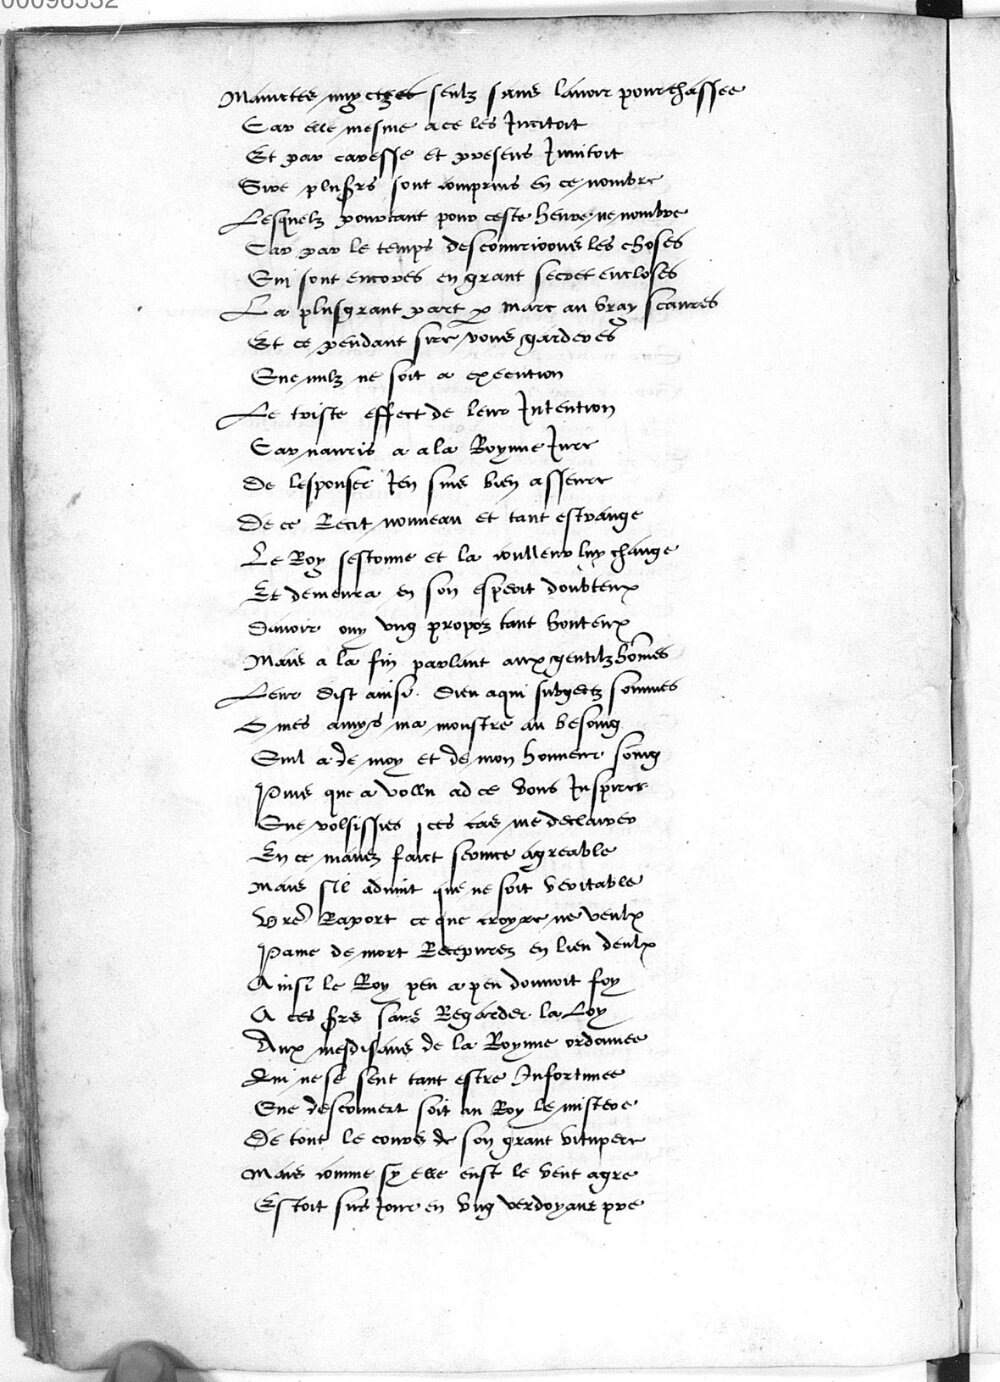 00096532
Mainctes nuyctees seulz sans lavoir pourchassee
Car elle mesme a ce les Incitoit
Et par caresse et presens Invitoit
Sire plusrs sont comprins en ce nombre
Lesquelz pourtant pour ceste heure ne nombre
Car par le temps descouvrirons les choses
Qui sont encores en grant secret encloses
La plusgrant part p marc au vray scaures
Et ce pendant sire vous garderes
Que nulz ne soit a execution
Le triste effect de leur Intention
Car navris a a la Royne Jure
De lespouser Jen suis bien asseure
De ce Recit nouveau et tant estrange
Le Roy sestonne et la coulleur luy change
Et demeura en son esperit doubteux
Davoir ouy ung propoz tant honteux
Mais a la fin parlant aux gentilzhomes
Leur dist ainsi Dieu a qui subgectz sommes
O mes amys ma monstre au besoing
Quil a de moy et de mon honneur soing
Puis que a vollu ad ce vous Inspirer
Que volsissies ces cas me declairer
En ce mavez faict service agreable
Mais sil advint que ne soit veritable
Vre Raport ce que croyre ne veulx
Paine de mort Recepvrez en lieu deulx
Ainsi le Roy peu a peu donnoit foy
A ces frs sans Regarder la Loy
Aux mesdisans de la Royne ordonnee
Qui ne se sent tant estre Infortunee
Que descouvert soit au Roy le mistere
De tout le cours de son grant vitupere
Mais comme sy elle eust le vent agre
Estoit sus Jour en ung verdoyant pre